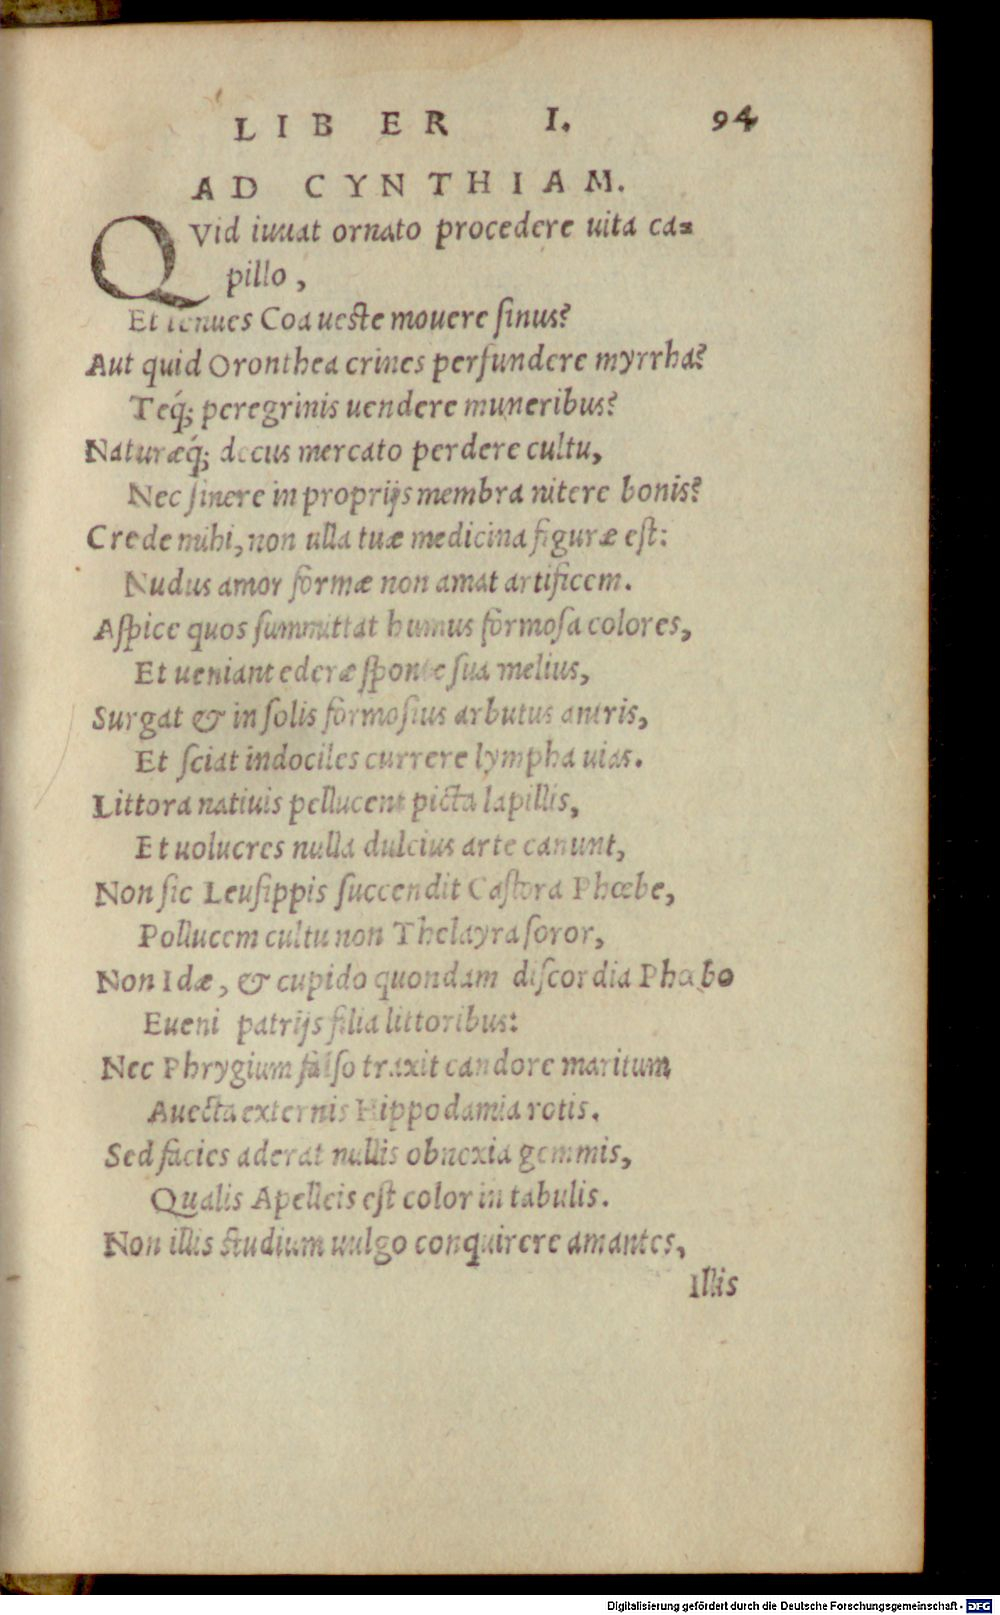 LIBER I. 94
AD CYNTHIAM.
QVid iuuat ornato procedere uita ca=
pillo,
Et tenues Coa ueste mouere ſinus?
Aut quid Oronthea crines perfundere myrrha?
Teq́; peregrinis uendere muneribus?
Naturæq́; decus mercato perdere cultu,
Nec ſinere in proprijs membra nitere bonis?
Crede mihi, non ulla tuæ medicina figuræ eſt:
Nudus amor formæ non amat artificem.
Aſpice quos ſummittat humus formoſa colores,
Et ueniant ederæ ſponte ſua melius,
Surgat & in ſolis formoſius arbutus antris,
Et ſciat indociles currere lympha uias.
Littora natiuis pellucent picta lapillis,
Et uolucres nulla dulcius arte canunt,
Non ſic Leuſippis ſuccendit Caſtora Phœbe,
Pollucem cultu non Thelayra ſoror,
Non Idæ, & cupido quondam diſcordia Phœbo
Eueni patrijs filia littoribus:
Nec Phrygium falſo traxit candore maritum
Auecta externis Hippodamia rotis.
Sed facies aderat nullis obnoxia gemmis,
Qualis Apelleis eſt color in tabulis.
Non illis ſtudium uulgo conquirere amantes,
Illis
Digitalisierung gefördert durch die Deutsche Forschungsgemeinschaft - DFG